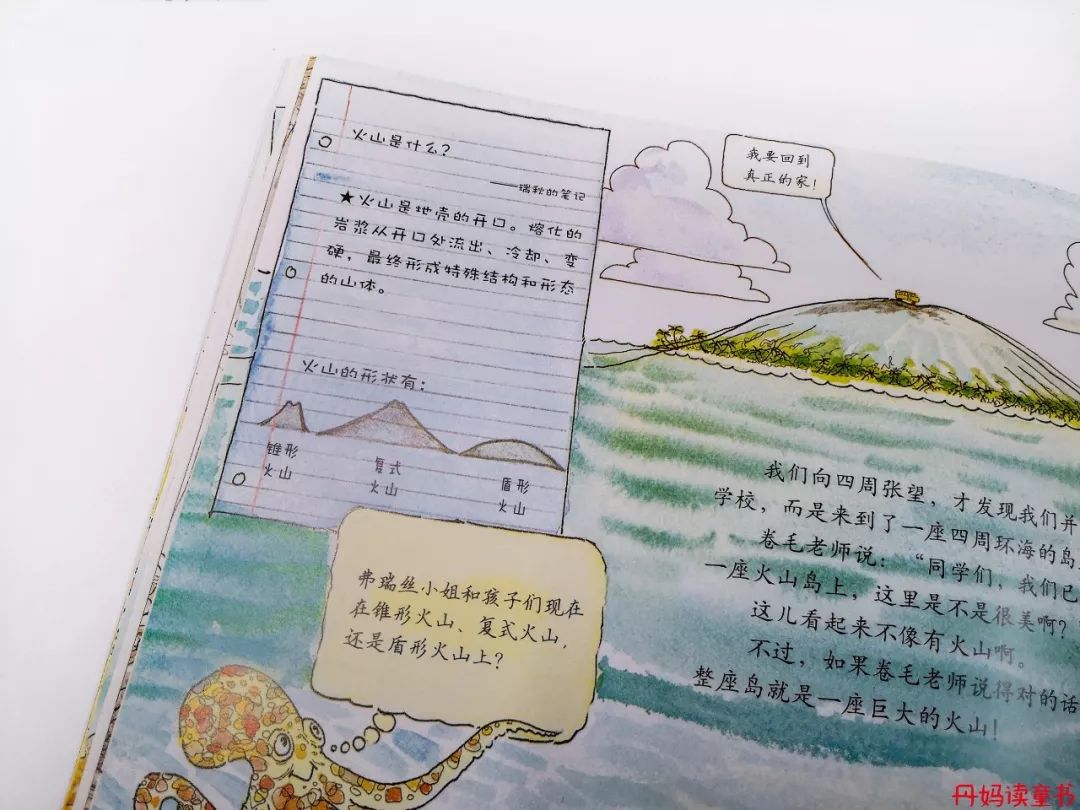 火山是什么？
——瑞秋的笔记
★火山是地壳的开口。熔化的
岩浆从开口处流出、冷却、变
硬，最终形成特殊结构和形态
的山体。
火山的形状有：
锥形
火山
复式
火山
盾形
火山
我要回到
真正的家！
弗瑞丝小姐和孩子们现在
在锥形火山、复式火山，
还是盾形火山上？
我们向四周张望，才发现我们并
学校，而是来到了一座四周环海的岛
卷毛老师说：“同学们，我们已
一座火山岛上，这里是不是很美啊？
这儿看起来不像有火山啊。
不过，如果卷毛老师说得对的话
整座岛就是一座巨大的火山！
丹妈读童书